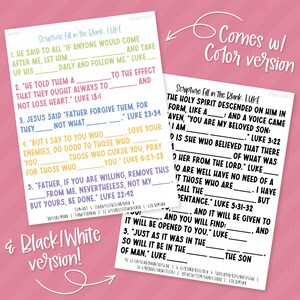 Comes w/
Color version!
Scripture Fill in the Blank: LUKE
1. HE SAID TO ALL "IF ANYONE WOULD COME
AFTER ME, LET HIM ______ AND TAKE
UP HIS ______ DAILY AND FOLLOW ME." LUKE
2. "HE TOLD THEM A ______ TO THE EFFECT
THAT THEY OUGHT ALWAYS TO ______ AND
NOT LOSE HEART." LUKE 18:1
3. JESUS SAID "FATHER FORGIVE THEM, FOR
THEY ______ NOT WHAT ______." LUKE 23:34
4. "BUT I SAY TO YOU WHO ______ LOVE YOUR
ENEMIES, DO GOOD TO THOSE WHO ______
YOU, ______ THOSE WHO CURSE YOU, PRAY
FOR ______ YOU." LUKE 6:27-28
5. "FATHER, IF YOU ARE WILLING, REMOVE THIS
FROM ME. NEVERTHELESS, NOT MY ______
BUT YOURS, BE DONE." LUKE 22:42
Scripture Fill in the Blank: LUKE
THE HOLY SPIRIT DESCENDED ON HIM IN
FORM, LIKE A ______; AND A VOICE CAME
HEAVEN, "YOU ARE MY BELOVED SON;
______." LUKE 3:22
IS SHE WHO BELIEVED THAT THERE
OF WHAT WAS
HER FROM THE LORD." LUKE
ARE WELL HAVE NO NEED OF A
______ I HAVE
CALL THE ______
PENTANCE." LUKE 5:31-32
AND IT WILL BE GIVEN TO
AND YOU WILL FIND; ______ AND
IT WILL BE OPENED TO YOU." LUKE
5. "JUST AS IT WAS IN THE
SO WILL IT BE IN THE ______ THE SON
OF MAN." LUKE
& Black/White
version!